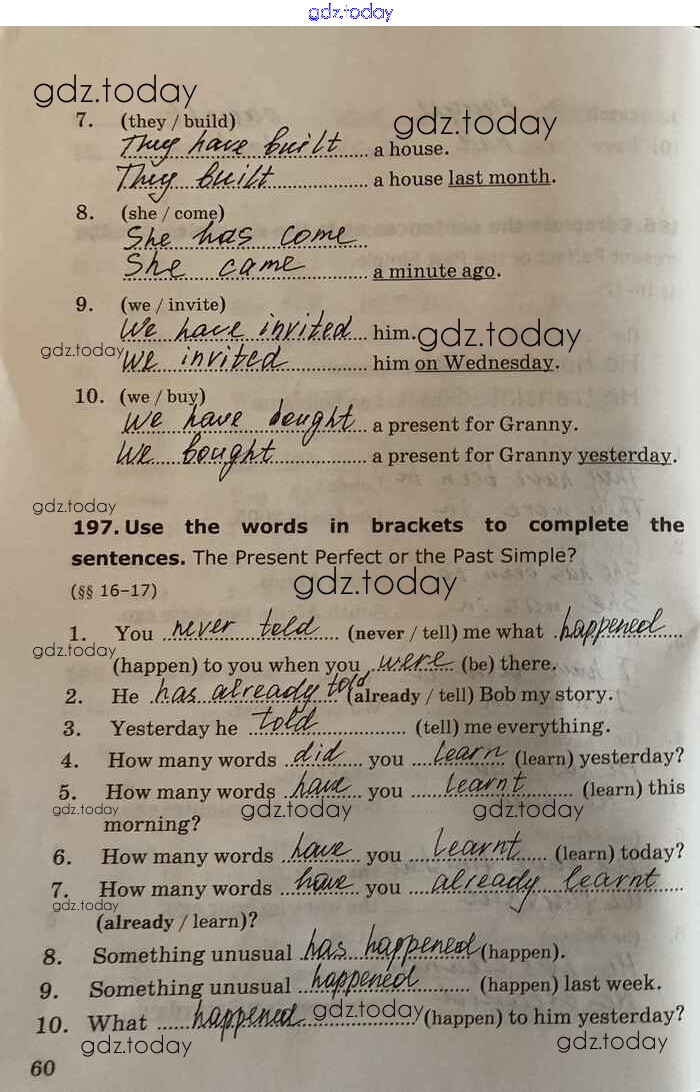 gdz.today
gdz.today
7. (they / build)
gdz.today
They have built a house.
They built a house last month.
8. (she / come)
She has come
She came a minute ago.
9. (we / invite)
We have invited him. gdz.today
gdz.today
We invited him on Wednesday.
10. (we / buy)
We have bought a present for Granny.
We bought a present for Granny yesterday.
gdz.today
197. Use the words in brackets to complete the
sentences. The Present Perfect or the Past Simple?
(§§ 16–17) gdz.today
1. You never told (never / tell) me what happened
gdz.today
(happen) to you when you were (be) there.
2. He has already told (already / tell) Bob my story.
3. Yesterday he told (tell) me everything.
4. How many words did you learn (learn) yesterday?
5. How many words have you learnt (learn) this
gdz.today gdz.today gdz.today
morning?
6. How many words have you learnt (learn) today?
7. How many words have you already learnt
gdz.today
(already / learn)?
8. Something unusual has happened (happen).
9. Something unusual happened (happen) last week.
gdz.today
10. What happened (happen) to him yesterday?
gdz.today gdz.today
60